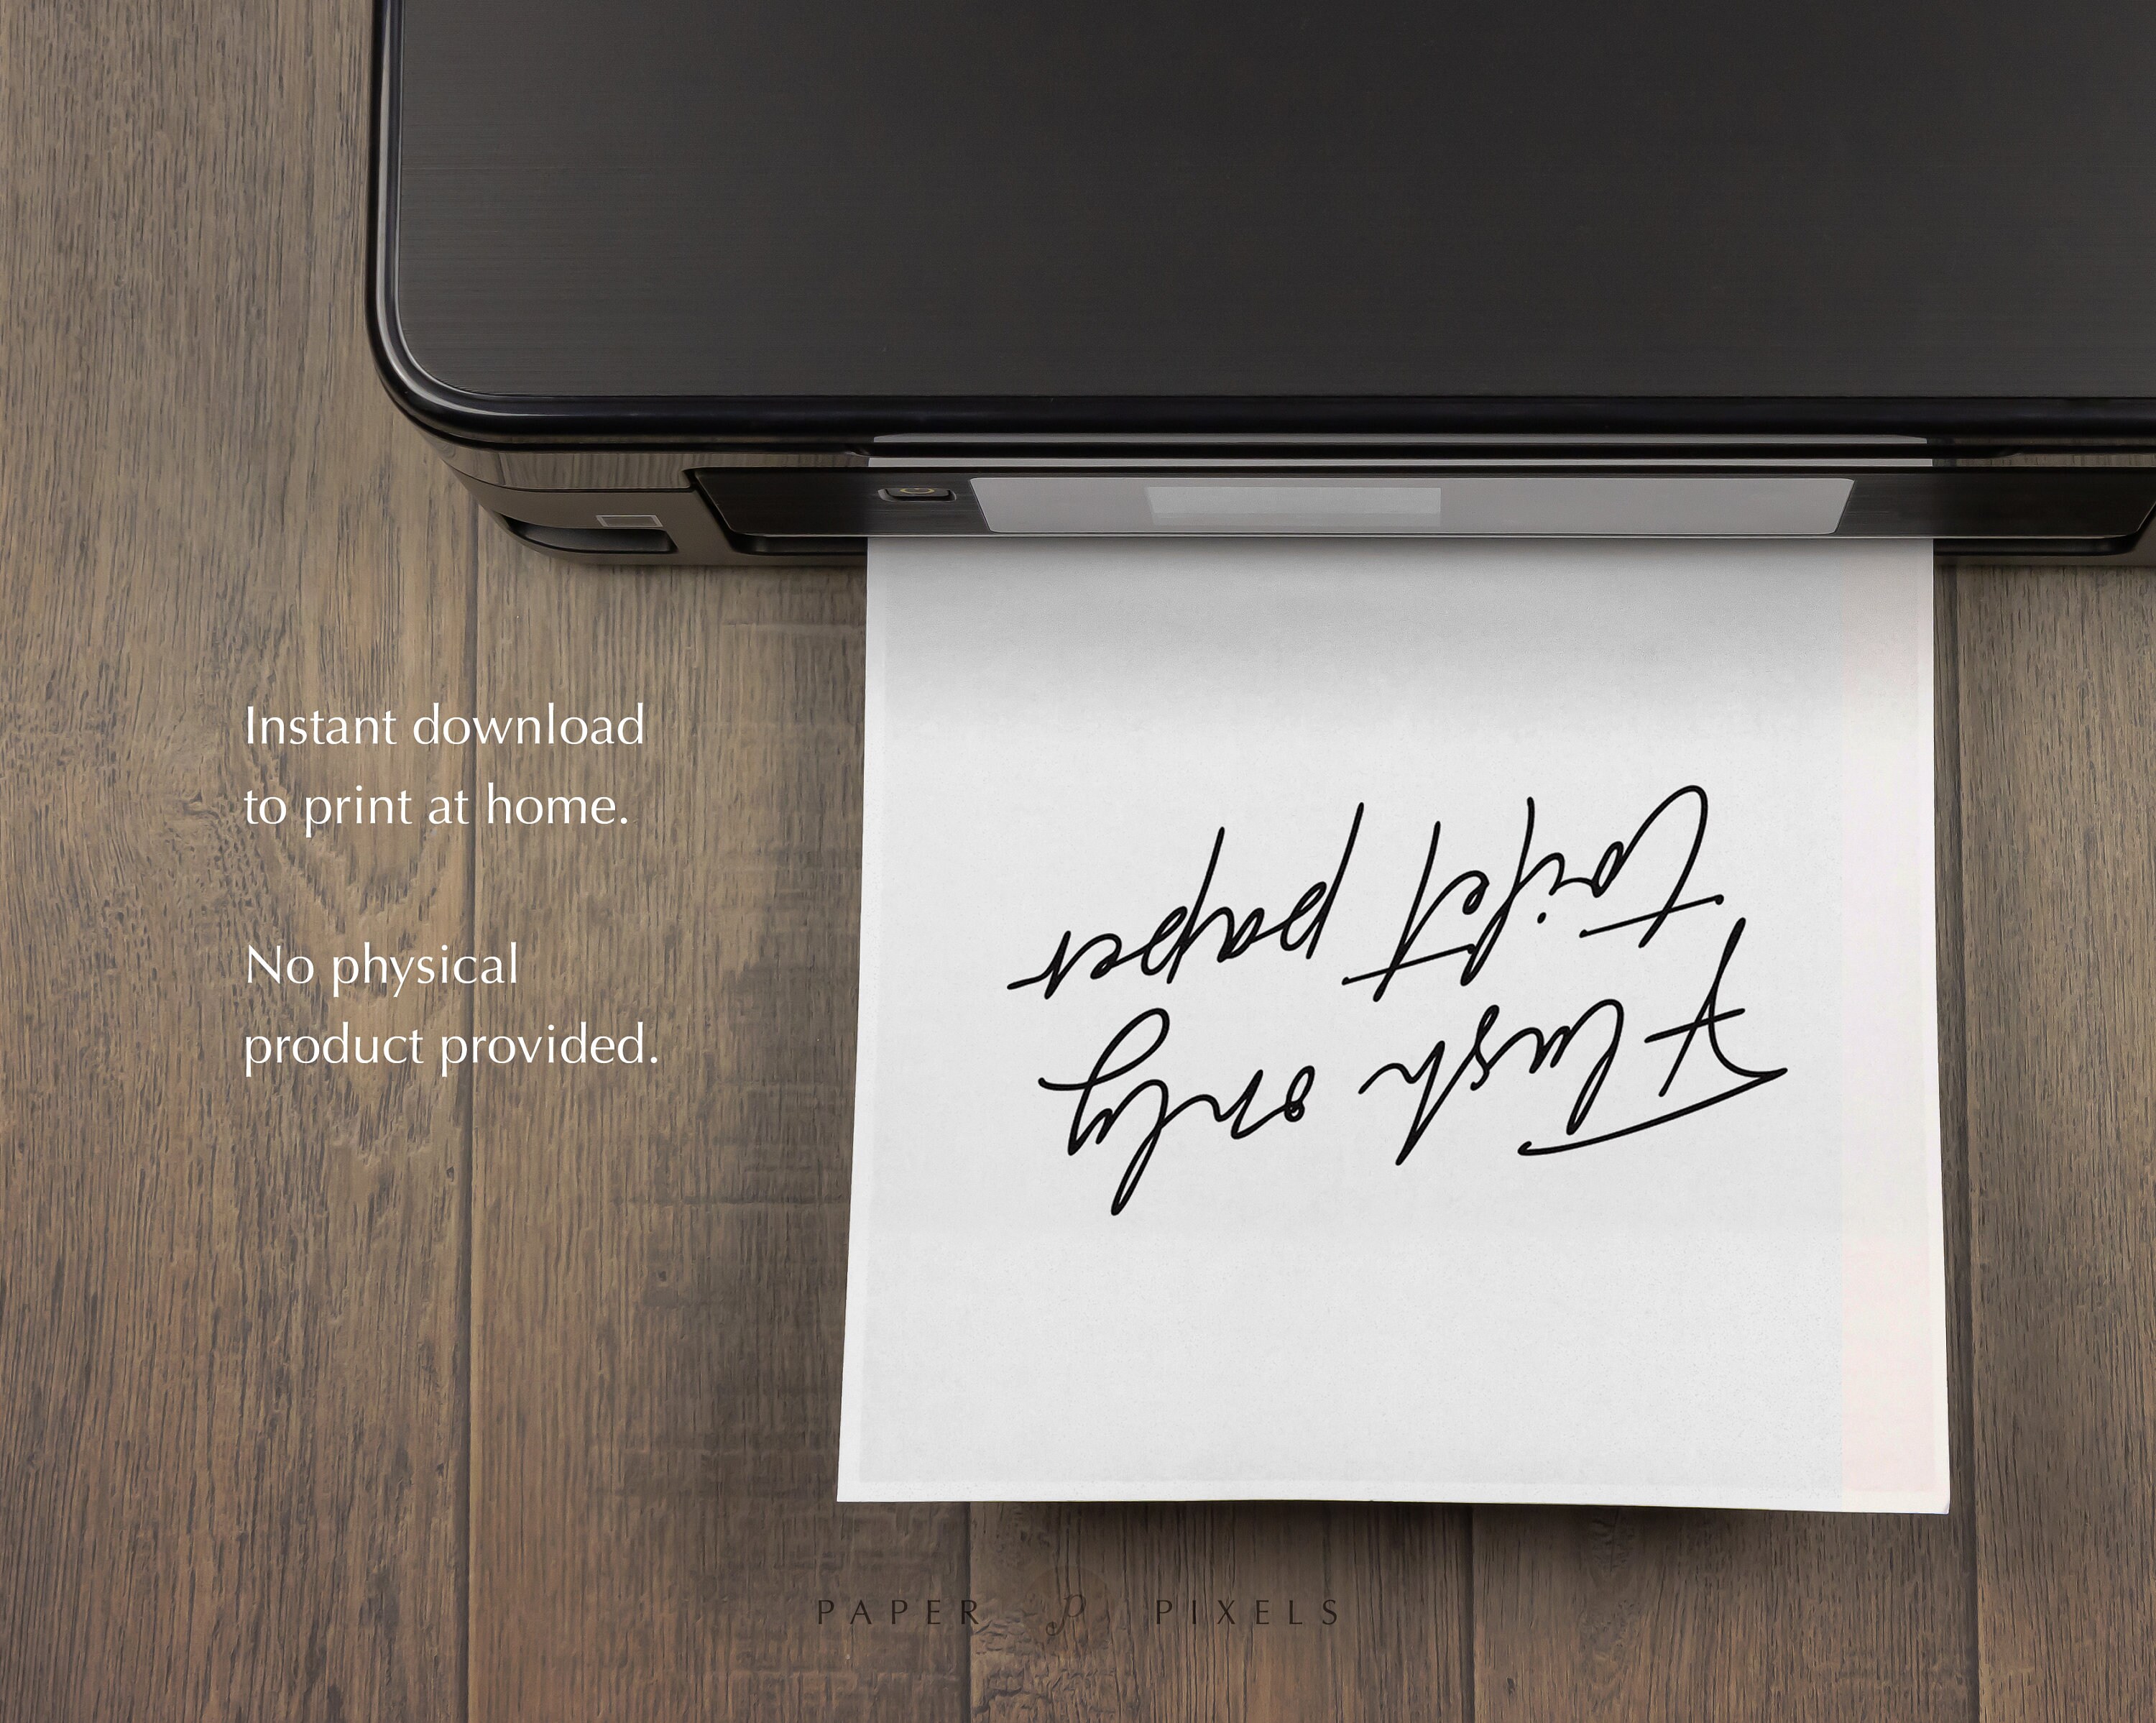 Instant download
to print at home.
No physical
product provided.
Flush only
toilet paper
PAPER p PIXELS